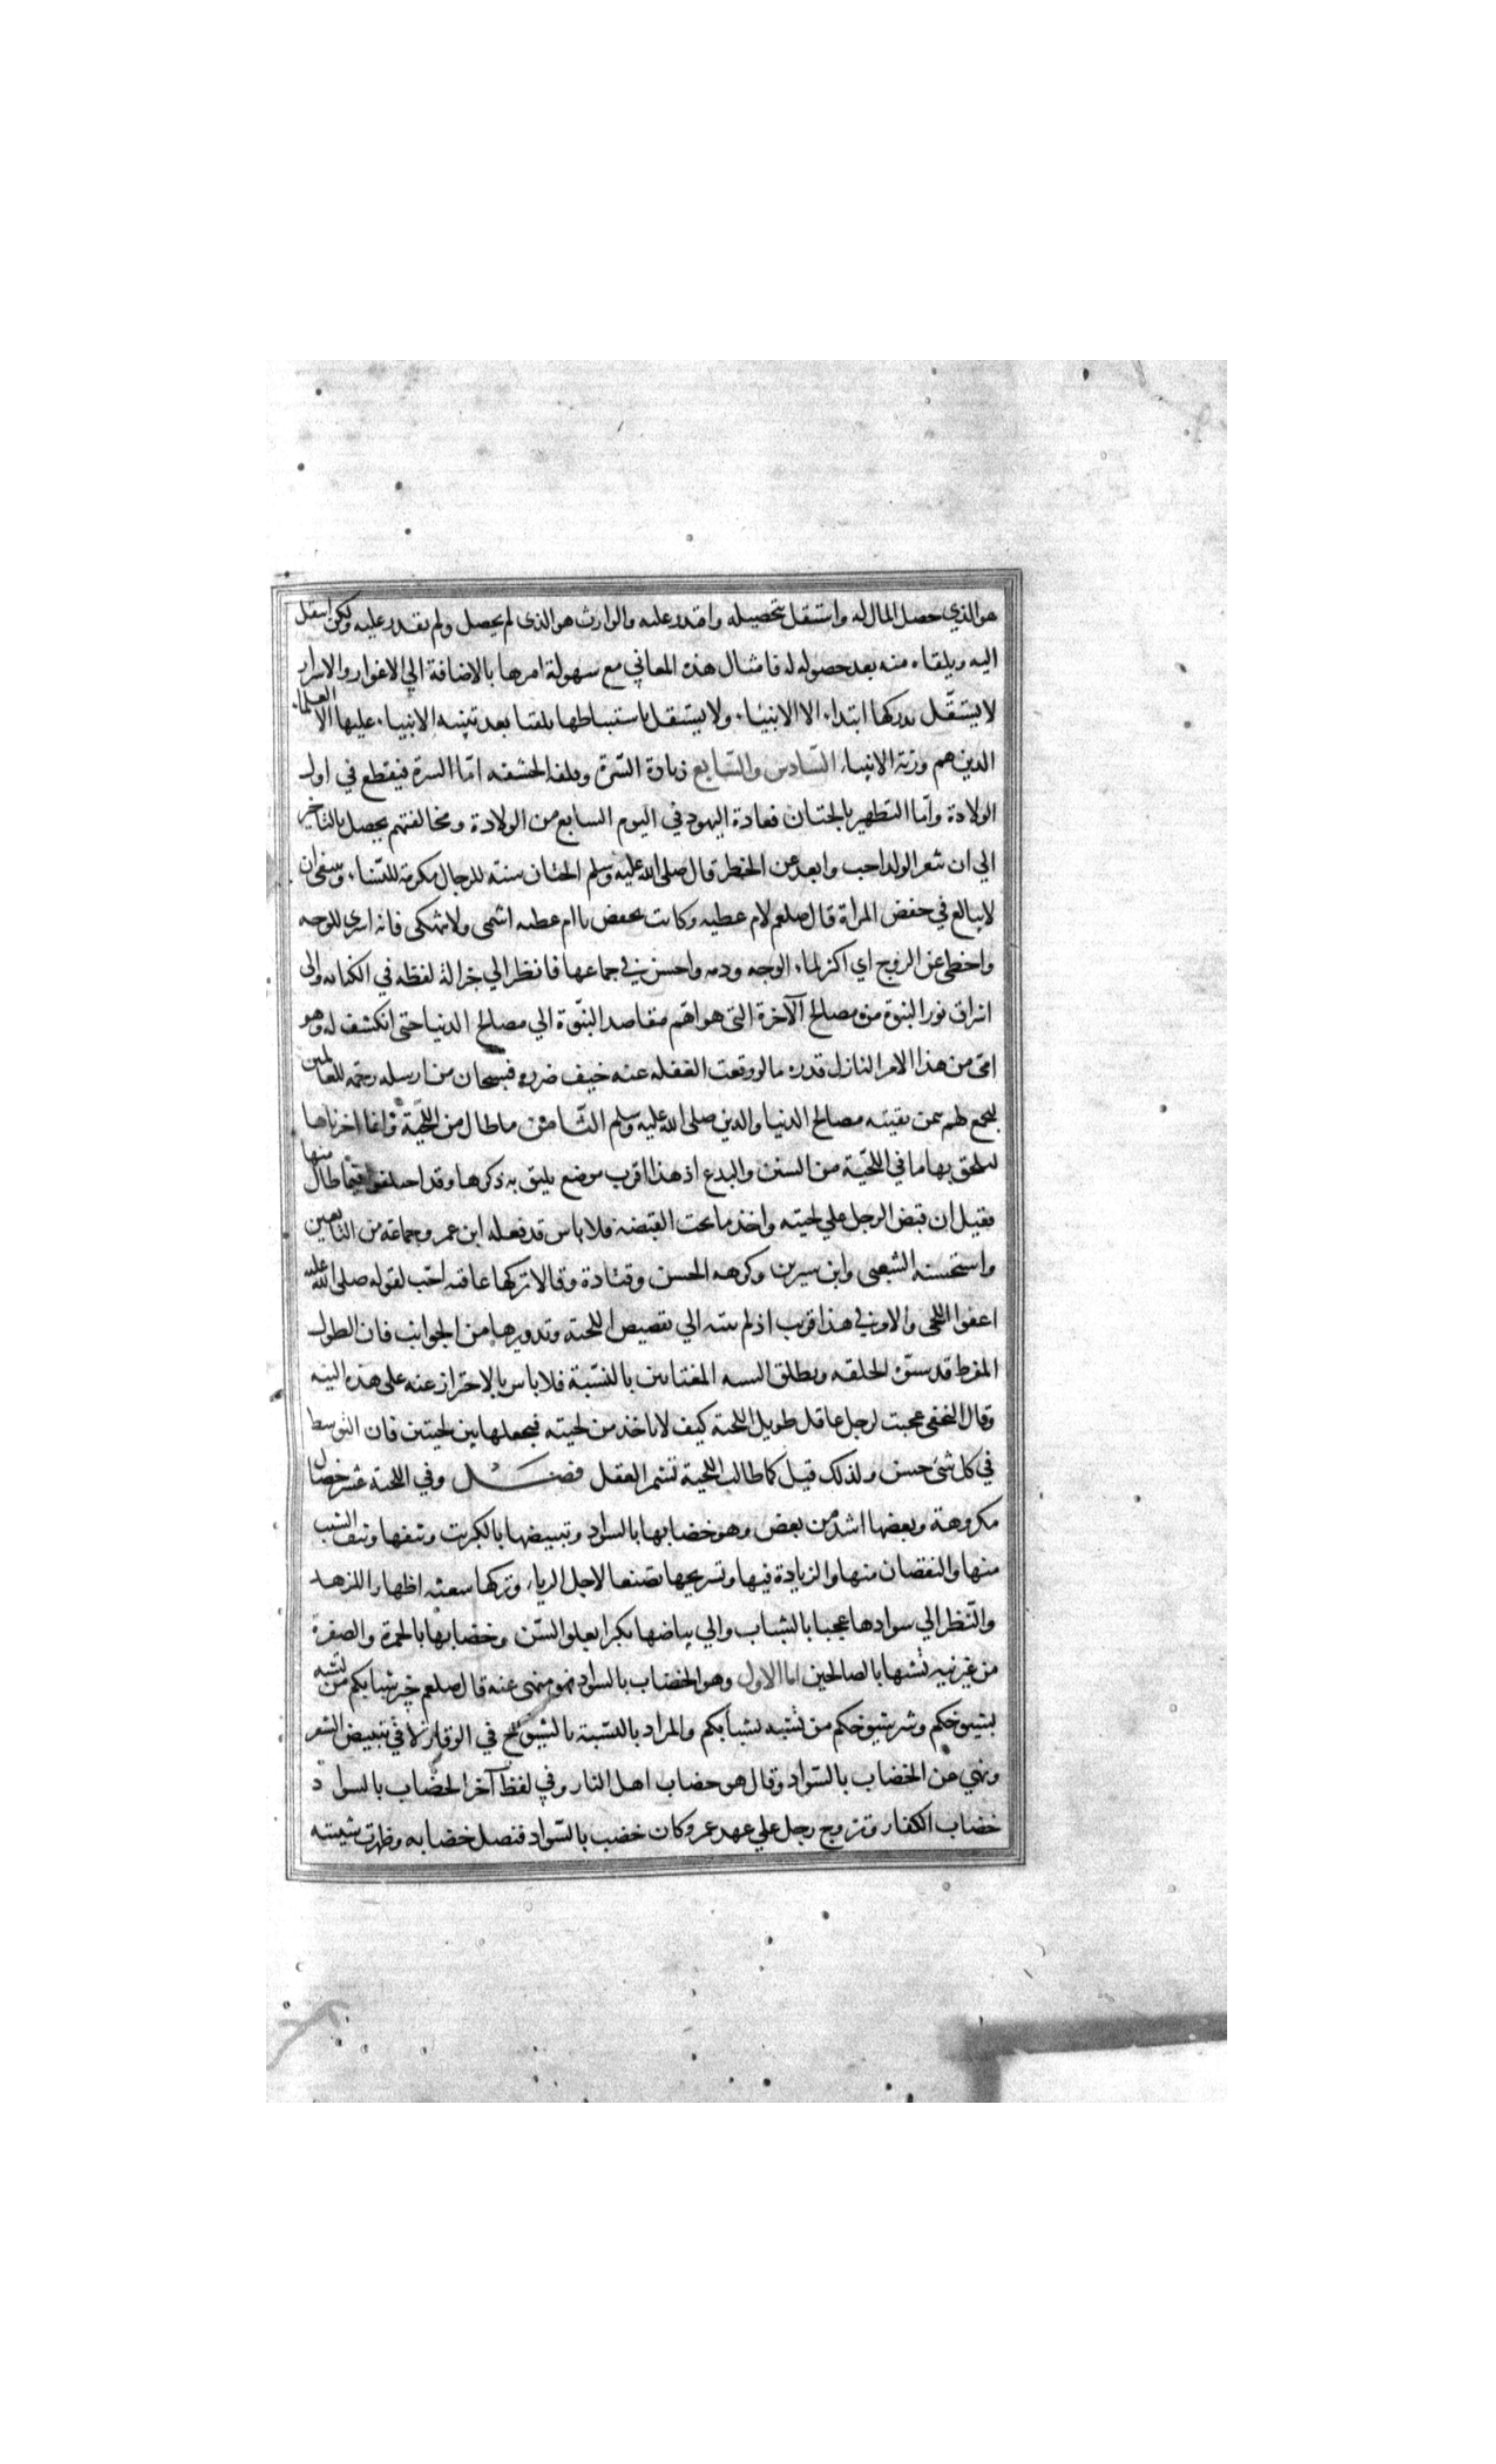 هو الذي حصل المال له واستقل بتحصيله واقتدر عليه والوارث هو الذي لم يحصل ولم يقدر عليه ولكن انتقل
اليه ويلقاه منه بعد حصوله له فامثال هذه المعاني مع سهولة امرها بالاضافة الي الاغوار والاسرار
لا يستقل بدركها ابتداء الا الانبياء ولا يستقل باستنباطها تلقنا بعد تنبيه الانبياء عليها الا العلماء
الذين هم ورثة الانبياء السادس والسابع زيادة السرة وقلفه الحشفه اما السرة فيقطع في اول
الولادة واما التطهير بالختان فعادة اليهود في اليوم السابع من الولادة ومخالفتهم يحصل بالتاخير
الي ان ثغر الولد احب وابعد عن الخطر قال صلى الله عليه وسلم الختان سنته للرجال مكرمة للنساء وينبغي ان
لا يبالغ في خفض المراة قال صلعم لام عطيه وكانت تخفض يا ام عطيه اشمى ولا تنهكى فانه اسرى للوجه
واحظى عن الزوج اي اكثر لماء الوجه ودمه واحسن في جماعها فانظر الي جزالة لفظه في الكنايه والى
اشراق نور النبوة من مصالح الآخرة التى هو اهم مقاصد النبوة الي مصالح الدنيا حتى انكشف له وهو
امى من هذا الامر النازل قدره ما لو وقعت الغفله عنه خيف ضرره فسبحان من ارسله رحمة للعالمين
ليجمع لهم بيمن بعثته مصالح الدنيا والدين صلى الله عليه وسلم الثامن ما طال من اللحية وانما اخرناها
ليلحق بها ما في اللحية من السنن والبدع اذ هذا اقرب موضع يليق به ذكرها وقد اختلفوا فيما طال منها
فقيل ان قبض الرجل علي لحيته واخذ ما تحت القبضه فلا باس قد فعله ابن عمر وجماعه من التابعين
واستحسنه الشعبى وابن سيرين وكرهه الحسن وقتادة وقالا تركها عافيه احب لقوله صلى الله عليه
اعفوا اللحى والامر في هذا قريب اذ لم ينته الي تقصيص اللحية وتدويرها من الجوانب فان الطول
المفرط قد يشوه الخلقه ويطلق السنة المغتابين بالنسبة فلا باس بالاحتراز عنه على هذه النيه
وقال النخعى عجبت لرجل عاقل طويل اللحية كيف لا ياخذ من لحيته فيجعلها بين لحيتين فان التوسط
في كل شى حسن ولذلك قيل كلما طالت اللحية تشمر العقل فصل وفي اللحية عشر خصال
مكروهة وبعضها اشد من بعض وهو خضابها بالسواد وتبييضها بالكبريت ونتفها ونتف الشيب
منها والنقصان منها والزيادة فيها وتسريحها تصنعا لاجل الرياء وتركها شعثه اظهارا للزهد
والنظر الي سوادها عجبا بالشباب والي بياضها تكبرا بعلو السن وخضابها بالحمرة والصفرة
من غير نيه تشبها بالصالحين اما الاول وهو الخضاب بالسواد فهو منهى عنه قال صلعم خير شبابكم من تشبه
بشيوخكم وشر شيوخكم من تشبه بشبابكم والمراد بالتشبه بالشيوخ في الوقار لا في تبييض الشعر
ونهي عن الخضاب بالسواد وقال هو خضاب اهل النار وفي لفظ آخر الخضاب بالسواد
خضاب الكفار وتزوج رجل علي عهد عمر وكان خضب بالسواد فنصل خضابه وظهرت شيبته